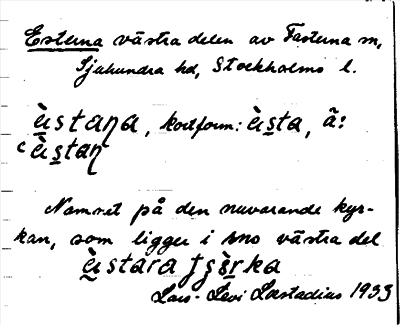 Esterna västra delen av Fasterna sn,
Sjuhundra hd, Stockholms l.
è̱istaṉa, kortform: è̱is̱ta, ã:
è̱is̱tan
Namnet på den nuvarande kyr-
kan, som ligger i sno västra del
è̱istara
Lars-Levi Læstadius 1933